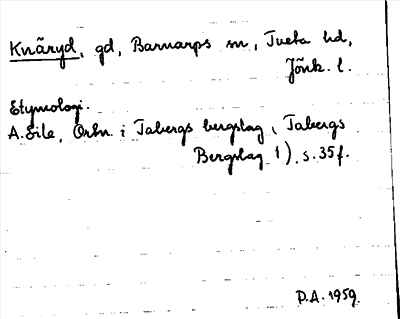 Knäryd, gd, Barnarps sn, Tveta hd,
Jönk. l.
Etymologi.
A. Eile, Ortn. i Tabergs bergslag (Tabergs
Bergslag 1), s. 35 f.
D.A. 1959.